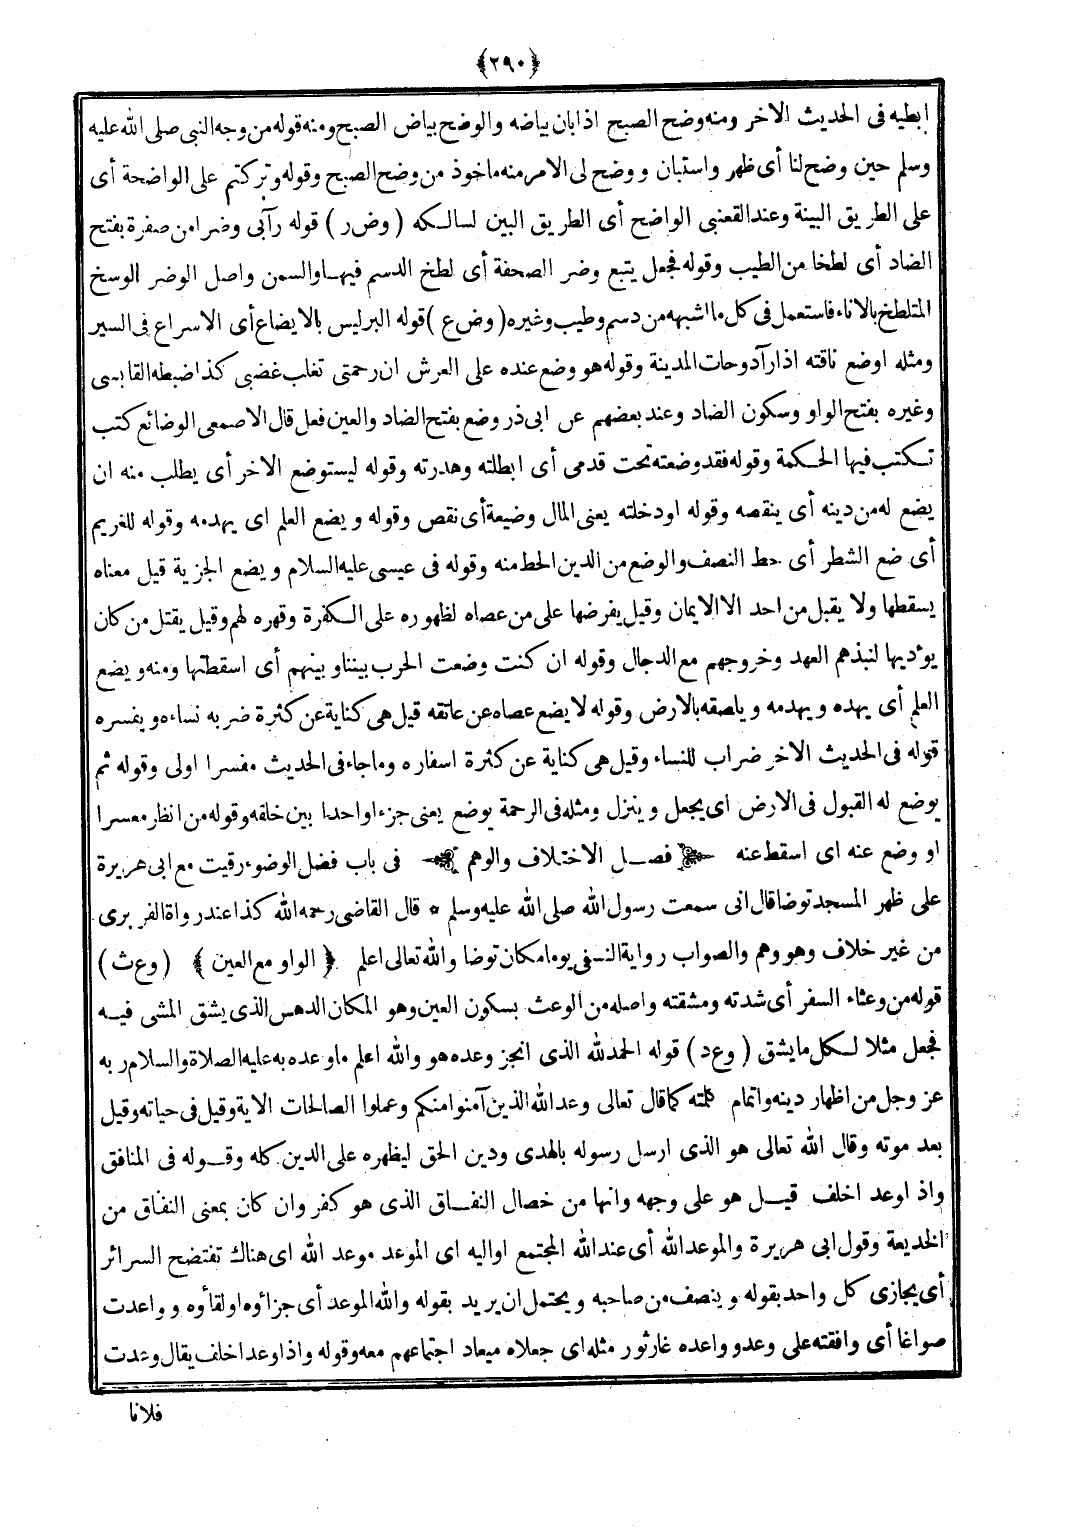 ﴿٢٩٠﴾
ابطيه فى الحديث الاخر ومنه وضح الصبح اذا بان بياضه والوضح بياض الصبح ومنه قوله من وجه النبى صلى الله عليه
وسلم حين وضح لنا أى ظهر واستبان ووضح لى الامر منه ماخوذ من وضح الصبح وقوله وتركتم على الواضحة أى
على الطريق البينة وعند القعنبى الواضح أى الطريق البين لسالكه ( وض ر ) قوله رآى وضرا من صفرة بفتح
الضاد أى لطخا من الطيب وقوله فجعل يتبع وضر الصحفة أى لطخ الدسم فيها والسمن واصل الوضر الوسخ
المتلطخ بالاناء فاستعمل فى كل ما اشبهه من دسم وطيب وغيره ( وض ع ) قوله البر ليس بالايضاع أى الاسراع فى السير
ومثله اوضع ناقته اذا رآ دوحات المدينة وقوله هو وضع عنده على العرش ان رحمتى تغلب غضبى كذا ضبطه القابسى
وغيره بفتح الواو وسكون الضاد وعند بعضهم عن ابى ذر وضع بفتح الضاد والعين فعل قال الاصمعى الوضائع كتب
تكتب فيها الحكمة وقوله فقد وضعته تحت قدمى أى ابطلته وهدرته وقوله ليستوضع الاخر أى يطلب منه ان
يضع له من دينه أى ينقصه وقوله اودخلته يعنى المال وضيعة أى نقص وقوله ويضع العلم اى يهدمه وقوله للغريم
أى ضع الشطر أى حط النصف والوضع من الدين الحط منه وقوله فى عيسى عليه السلام ويضع الجزية قيل معناه
يسقطها ولا يقبل من احد الا الايمان وقيل يفرضها على من عصاه لظهوره على الكفرة وقهره لهم وقيل يقتل من كان
يؤديها لنبذهم العهد وخروجهم مع الدجال وقوله ان كنت وضعت الحرب بيننا وبينهم أى اسقطتها ومنه ويضع
العلم أى يهده ويهدمه ويلصقه بالارض وقوله لا يضع عصاه عن عاتقه قيل هى كناية عن كثرة ضربه نساءه ويفسره
قوله فى الحديث الاخر ضراب للنساء وقيل هى كناية عن كثرة اسفاره وما جاء فى الحديث مفسرا اولى وقوله ثم
يوضع له القبول فى الارض اى يجعل وينزل ومثله فى الرحمة يوضع يعنى جزءا واحدا بين خلقه وقوله من انظر معسرا
او وضع عنه اى اسقط عنه فصل الاختلاف والوهم فى باب فضل الوضوء رقيت مع ابى هريرة
على ظهر المسجد توضا قال انى سمعت رسول الله صلى الله عليه وسلم * قال القاضى رحمه الله كذا عند رواة الفربرى
من غير خلاف وهو وهم والصواب رواية النسفى يوما مكان توضا والله تعالى اعلم ﴿ الواو مع العين ﴾ ( وع ث )
قوله من وعثاء السفر أى شدته ومشقته واصله من الوعث بسكون العين وهو المكان الدهس الذى يشق المشى فيه
فجعل مثلا لكل ما يشق ( وع د ) قوله الحمد لله الذى انجز وعده هو والله اعلم ما وعده به عليه الصلاة والسلام ربه
عز وجل من اظهار دينه واتمام كلمته كما قال تعالى وعد الله الذين آمنوا منكم وعملوا الصالحات الاية وقيل فى حياته وقيل
بعد موته وقال الله تعالى هو الذى ارسل رسوله بالهدى ودين الحق ليظهره على الدين كله وقوله فى المنافق
واذا وعد اخلف قيل هو على وجهه وانها من خصال النفاق الذى هو كفر وان كان بمعنى النفاق من
الخديعة وقول ابى هريرة والموعد الله أى عند الله المجتمع او اليه اى الموعد موعد الله اى هناك تفتضح السرائر
أى يجازى كل واحد بقوله وينصف من صاحبه ويحتمل ان يريد بقوله والله الموعد أى جزاؤه او لقاؤه وواعدت
صواغا أى وافقته على وعد وواعده غار ثور مثله اى جعلاه ميعاد اجتماعهم معه وقوله واذا وعد اخلف يقال وعدت
فلانا